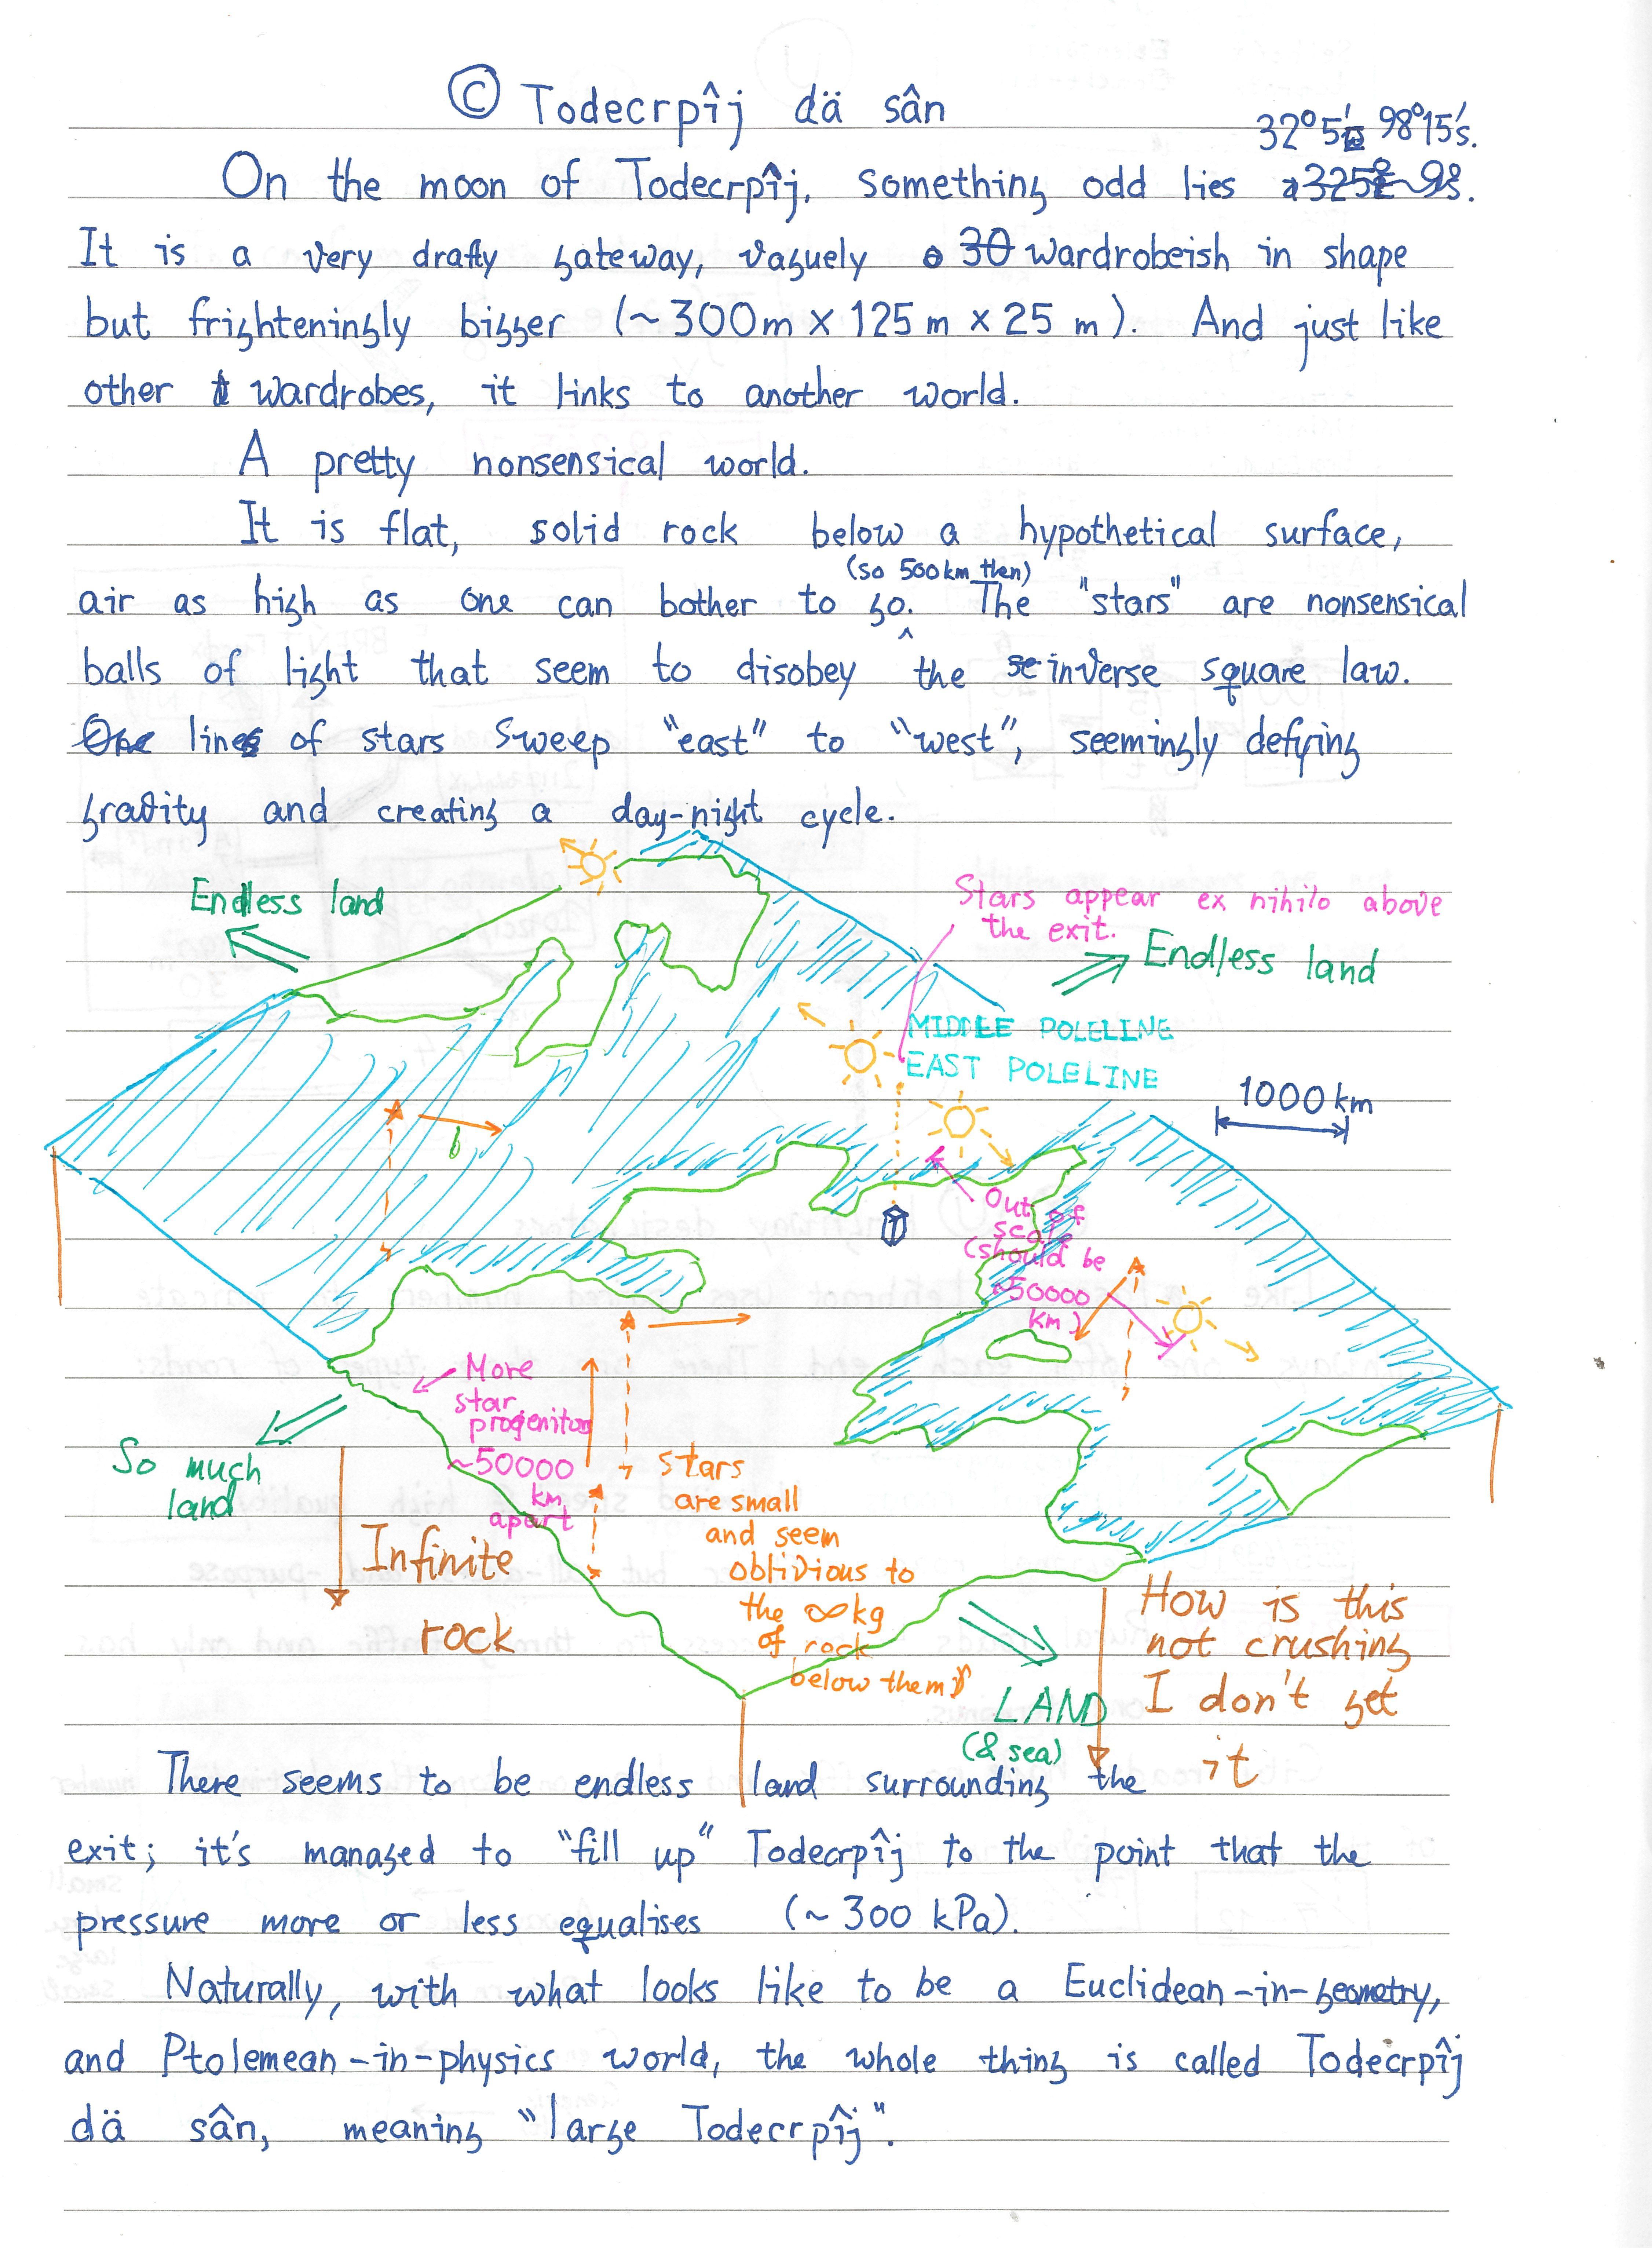 © Todecrpîj dä sân
32°5' 98°15's.
On the moon of Todecrpîj, something odd lies
It is a very drafty gateway, vaguely wardrobeish in shape
but frighteningly bigger (~300m x 125 m x 25 m). And just like
other wardrobes, it links to another world.
A pretty nonsensical world.
It is flat, solid rock below a hypothetical surface,
(so 500km then)
air as high as one can bother to go. The "stars" are nonsensical
balls of light that seem to disobey the inverse square law.
lines of stars sweep "east" to "west", seemingly defying
gravity and creating a day-night cycle.
Endless land
Stars appear ex nihilo above
the exit.
Endless land
MIDDLE POLELINE
EAST POLELINE
1000km
Out of
scale
(should be
~50000
km)
More
star
progenitors
~50000
km
apart
So much
land
Infinite
rock
stars
are small
and seem
oblivious to
the ∞kg
of rock
below them
LAND
(& sea)
How is this
not crushing
I don't get
it
There seems to be endless land surrounding the
exit; it's managed to "fill up" Todecrpîj to the point that the
pressure more or less equalises (~300 kPa).
Naturally, with what looks like to be a Euclidean-in-geometry,
and Ptolemean-in-physics world, the whole thing is called Todecrpîj
dä sân, meaning "large Todecrpîj".